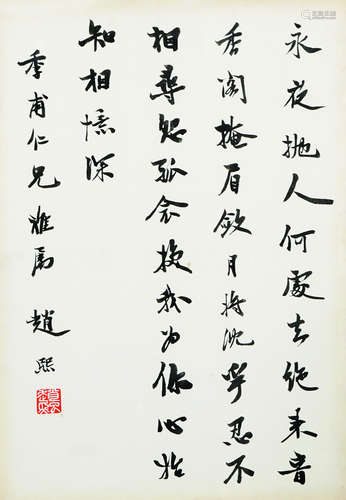 永夜抛人何處去绝来音
香阁掩眉敛月将沈争忍不
相尋怨孤衾换我为你心始
知相憶深
季甫仁兄雅属 趙熙